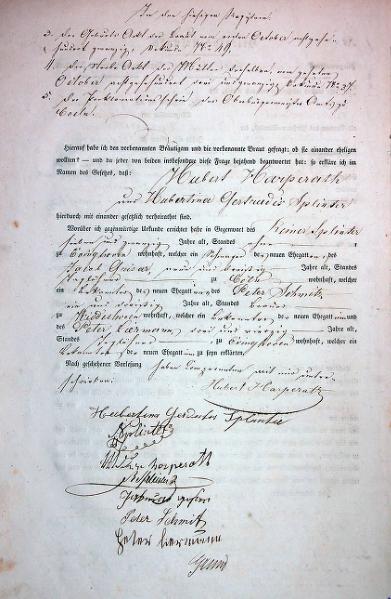 In den hiesigen Registern.
3. Der Geburts Akt der Braut vom ersten October achtzehn
hundert zwanzig, Urkunde No 49.
4. Der Sterbe Akt der Mutter derselben, vom
October achtzehnhundert drei und zwanzig, Urkunde No 37.
5. Der Proklamationsschein des Oberbürgermeister Amts zu
Coeln.
Hierauf habe ich den vorbenannten Bräutigam und die vorbenannte Braut gefragt: ob sie einander ehelichen
wollen? — und da jeder von beiden insbesondere diese Frage bejahend beantwortet hat: so erkläre ich im
Namen des Gesetzes, daß:
Hubert Harperath
und Hubertina Gertrudis Splinter
hierdurch mit einander gesetzlich verheirathet sind.
Worüber ich gegenwärtige Urkunde errichtet habe in Gegenwart des Reiner Splinter
sieben und zwanzig Jahre alt, Standes
zu wohnhaft, welcher ein Schwager der neuen Ehegatten, des
Jacob neun und dreißig Jahre alt, Standes
Taglöhner zu Cöln wohnhaft, welcher
ein Bekannter der neuen Ehegatten, des Peter Schmitz
ein und dreißig Jahre alt, Standes
zu wohnhaft, welcher ein Bekannter der neuen Ehegatten und
des Peter Hermann, drei und vierzig Jahre alt,
Standes Taglöhner zu wohnhaft, welcher ein
Bekannter der neuen Ehegatten zu seyn erklären.
Nach geschehener Vorlesung haben Comparenten mit mir unter-
schrieben:
Hubert Harperath
Hubertina Gerdrutes Splinter
Splinter
Harperath
Splinter
Peter Schmitz
Peter Hermann